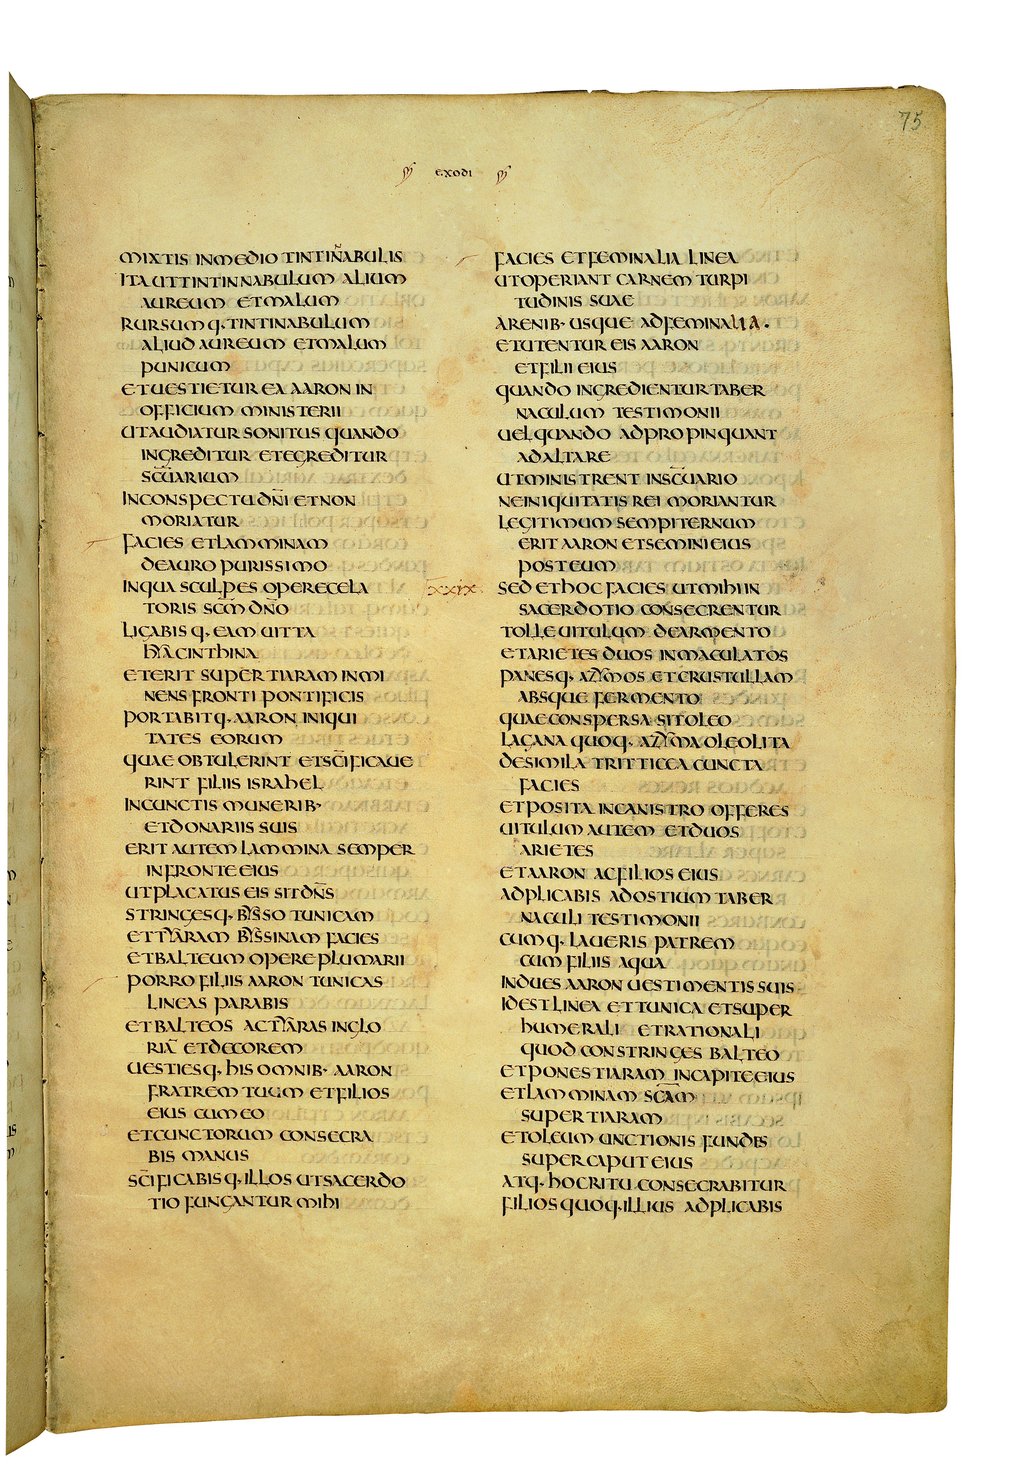 75
EXODI
MIXTIS INMEDIO TINTIN̄ABULIS
ITA UT TINTINNABULUM ALIUM
AUREUM ET MALUM
RURSUMQ· TINTINABULUM
ALIUD AUREUM ET MALUM
PUNICUM
ET UESTIETUR EA AARON IN
OFFICIUM MINISTERII
UT AUDIATUR SONITUS QUANDO
INGREDITUR ET EGREDITUR
SC̄UARIUM
IN CONSPECTU DN̄I ET NON
MORIATUR
FACIES ET LAMMINAM
DE AURO PURISSIMO
IN QUA SCULPES OPERE CELA
TORIS SC̄M DN̄O
LIGABISQ· EAM UITTA
HYACINTHINA
ET ERIT SUPER TIARAM INMI
NENS FRONTI PONTIFICIS
PORTABITQ· AARON INIQUI
TATES EORUM
QUAE OBTULERINT ET SC̄IFICAUE
RINT FILII ISRAHEL
IN CUNCTIS MUNERIB·
ET DONARIIS SUIS
ERIT AUTEM LAMMINA SEMPER
IN FRONTE EIUS
UT PLACATUS EIS SIT DN̄S
STRINGESQ· BYSSO TUNICAM
ET TYARAM BYSSINAM FACIES
ET BALTEUM OPERE PLUMARII
PORRO FILIIS AARON TUNICAS
LINEAS PARABIS
ET BALTEOS AC TYARAS IN GLO
RIĀ ET DECOREM
UESTIESQ· HIS OMNIB· AARON
FRATREM TUUM ET FILIOS
EIUS CUM EO
ET CUNCTORUM CONSECRA
BIS MANUS
SC̄IFICABISQ· ILLOS UT SACERDO
TIO FUNGANTUR MIHI
FACIES ET FEMINALIA LINEA
UT OPERIANT CARNEM TURPI
TUDINIS SUAE
A RENIB· USQUE AD FEMINALIA·
ET UTENTUR EIS AARON
ET FILII EIUS
QUANDO INGREDIENTUR TABER
NACULUM TESTIMONII
UEL QUANDO ADPROPINQUANT
AD ALTARE
UT MINISTRENT IN SC̄UARIO
NE INIQUITATIS REI MORIANTUR
LEGITIMUM SEMPITERNUM
ERIT AARON ET SEMINI EIUS
POST EUM
XXIX
SED ET HOC FACIES UT MIHI IN
SACERDOTIO CONSECRENTUR
TOLLE UITULUM DE ARMENTO
ET ARIETES DUOS INMACULATOS
PANESQ· AZYMOS ET CRUSTULLAM
ABSQUE FERMENTO
QUAE CONSPERSA SIT OLEO
LAGANA QUOQ· AZYMA OLEO LITA
DE SIMILA TRITTICEA CUNCTA
FACIES
ET POSITA IN CANISTRO OFFERES
UITULUM AUTEM ET DUOS
ARIETES
ET AARON AC FILIOS EIUS
ADPLICABIS AD OSTIUM TABER
NACULI TESTIMONII
CUMQ· LAUERIS PATREM
CUM FILIIS AQUA
INDUES AARON UESTIMENTIS SUIS
ID EST LINEA ET TUNICA ET SUPER
HUMERALI ET RATIONALI
QUOD CONSTRINGES BALTEO
ET PONES TIARAM IN CAPITE EIUS
ET LAMMINAM SC̄AM
SUPER TIARAM
ET OLEUM UNCTIONIS FUNDES
SUPER CAPUT EIUS
ATQ· HOC RITU CONSECRABITUR
FILIOS QUOQ· ILLIUS ADPLICABIS